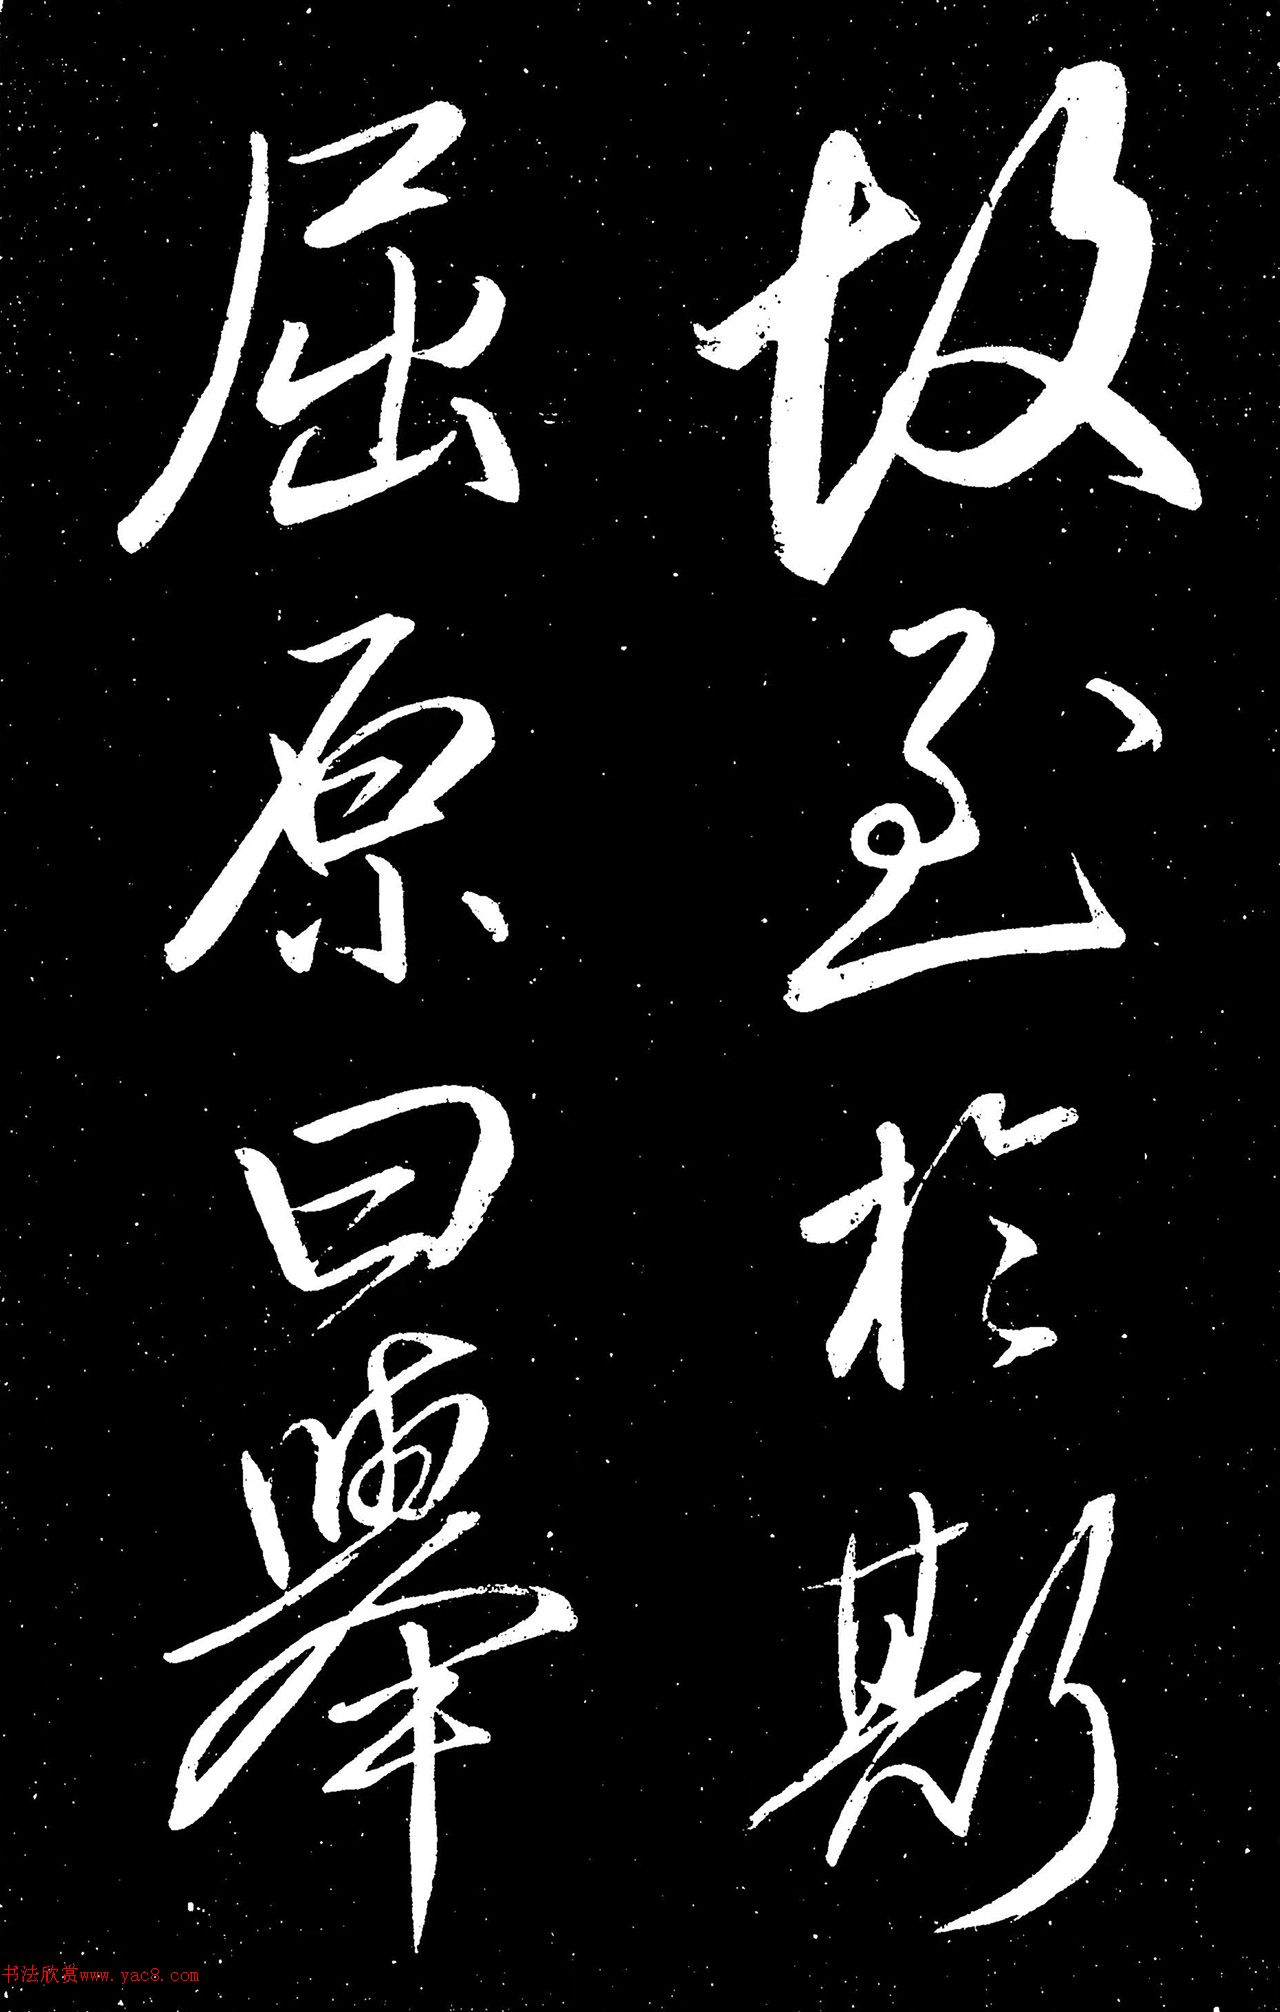 故至於斯
屈原曰舉
书法欣赏www.yac8.com